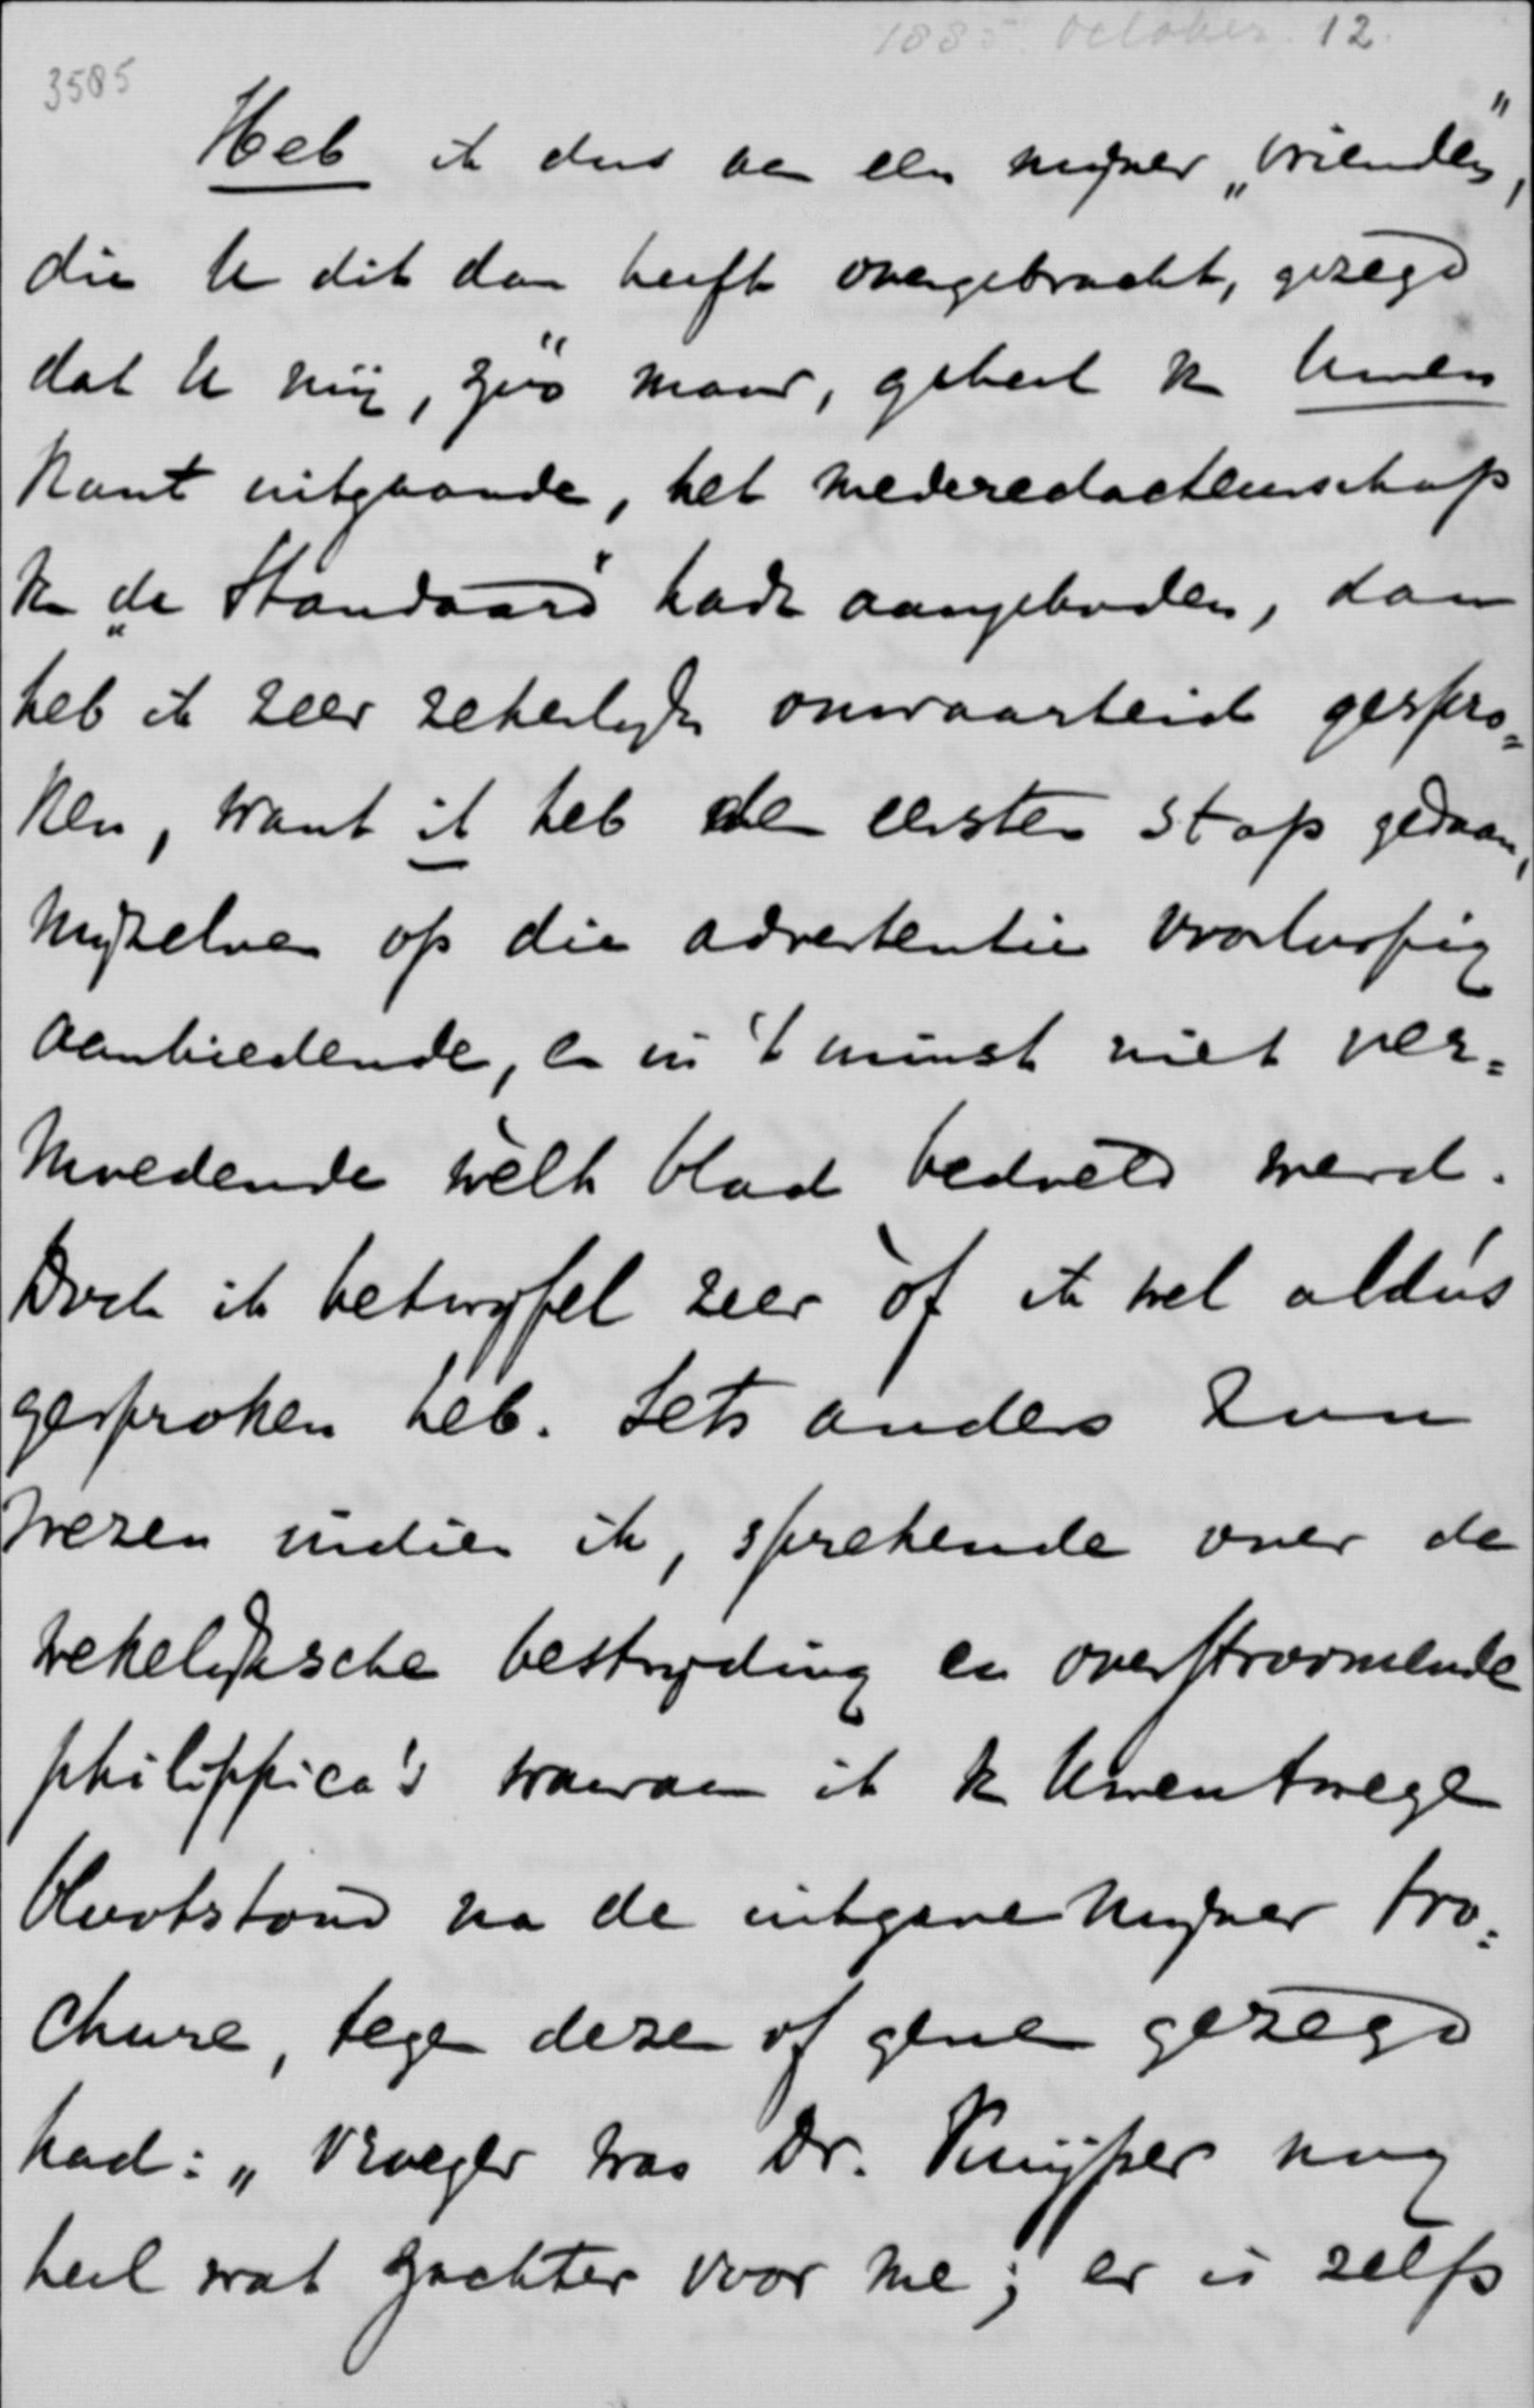 1885. October 12.
3585
Heb ik dus aan een mijner „vrienden”,
die U dit dan heeft overgebracht, gezegd
dat U mij, zóó maar, geheel van Uwen
kant uitgaande, het mederedacteurschap
van „de Standaard” hadt aangeboden, dan
heb ik zeer zekerlijk onwaarheid gespro=
ken, want ik heb den eersten stap gedaan,
mijzelven op die advertentie voorloopig
aanbiedende, en in 't minst niet ver=
moedende wèlk blad bedoeld werd.
Doch ik betwijfel zeer òf ik wel aldús
gesproken heb. Iets anders zou
wezen indien ik, sprekende over de
wekelijksche bestrijding en overstroomende
philippica's waaraan ik van Uwentwege
blootstond na de uitgave mijner bro=
chure, tegen dezen of genen gezegd
had: „Vroeger was Dr. Kuijper nog
heel wat zachter voor me; er is zelfs